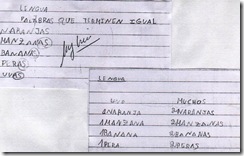 LENGUA
PALABRAS QUE TERMINEN IGUAL
NARANJAS
MANZANAS
BANANAS
PERAS
UVAS
LENGUA
UNO MUCHOS
1 NARANJA 2 NARANJAS
1 MANZANA 2 MANZANAS
1 BANANA 2 BANANAS
1 PERA 2 PERAS